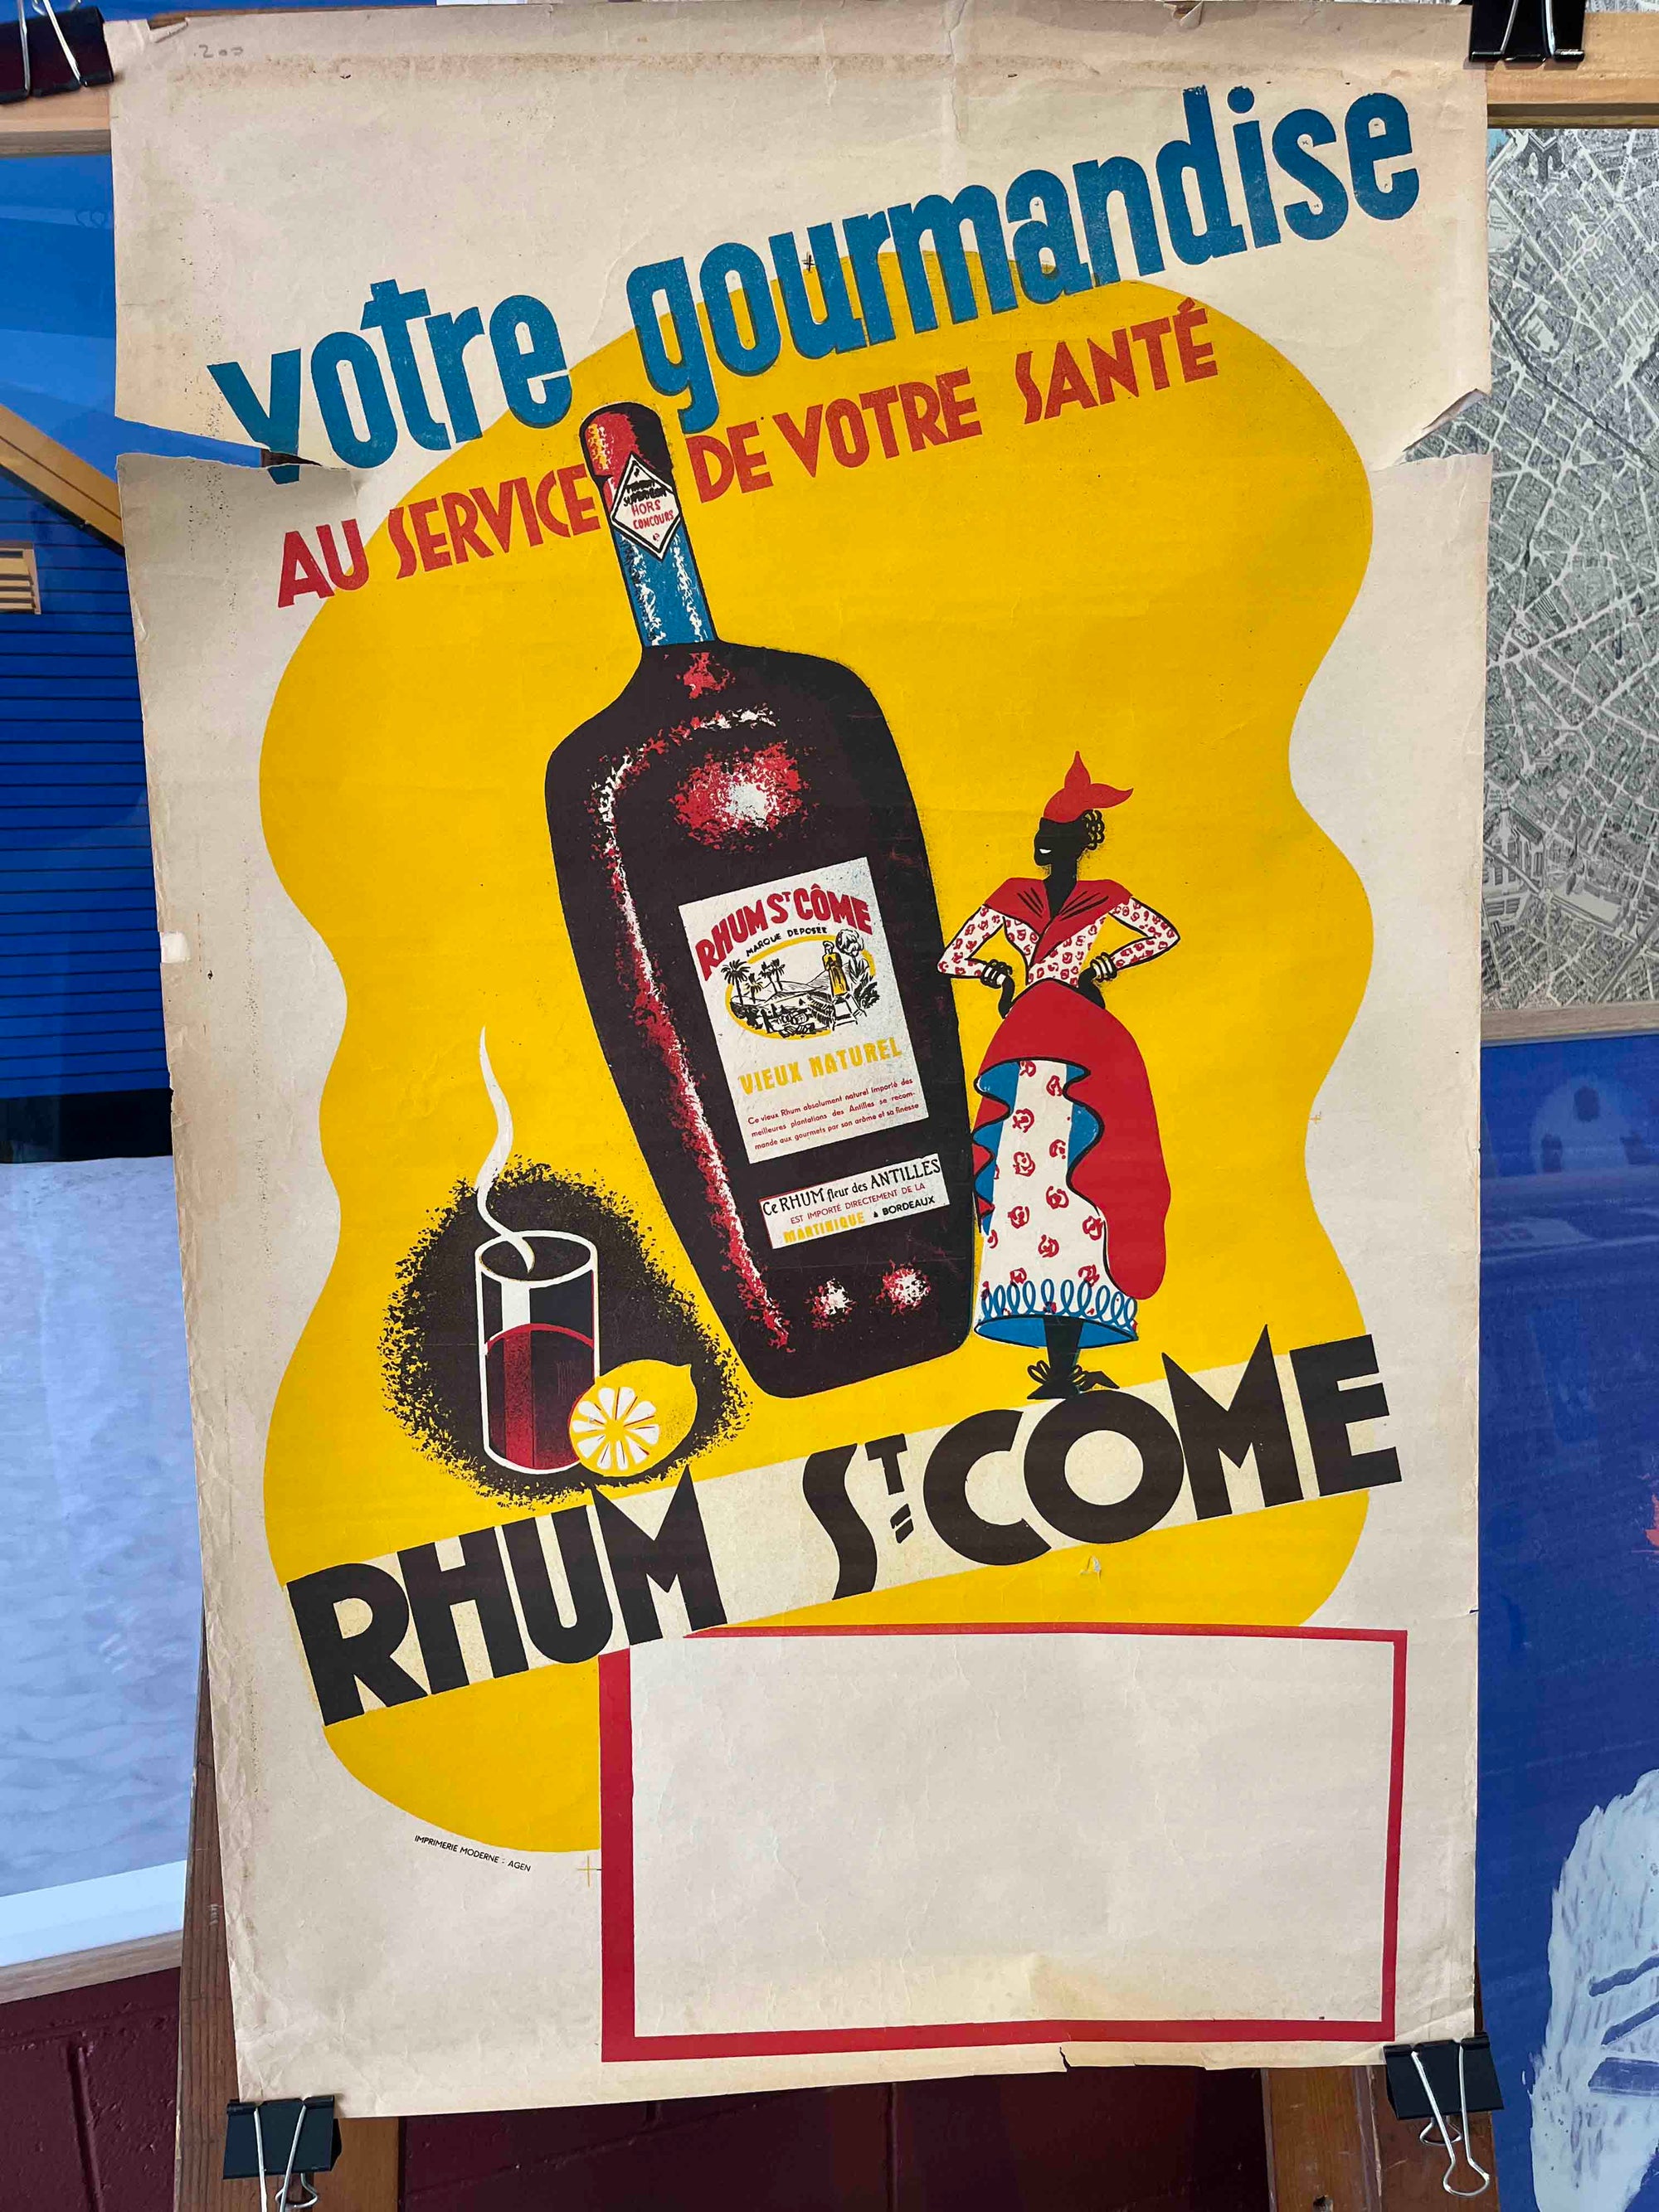 200
votre gourmandise
AU SERVICE DE VOTRE SANTÉ
HORS
CONCOURS
RHUM ST CÔME
MARQUE DEPOSÉE
VIEUX NATUREL
Ce vieux Rhum absolument naturel importé des
meilleures plantations des Antilles se recom-
mande aux gourmets par son arôme et sa finesse
Ce RHUM fleur des ANTILLES
EST IMPORTÉ DIRECTEMENT DE LA
MARTINIQUE à BORDEAUX
RHUM ST COME
IMPRIMERIE MODERNE - AGEN